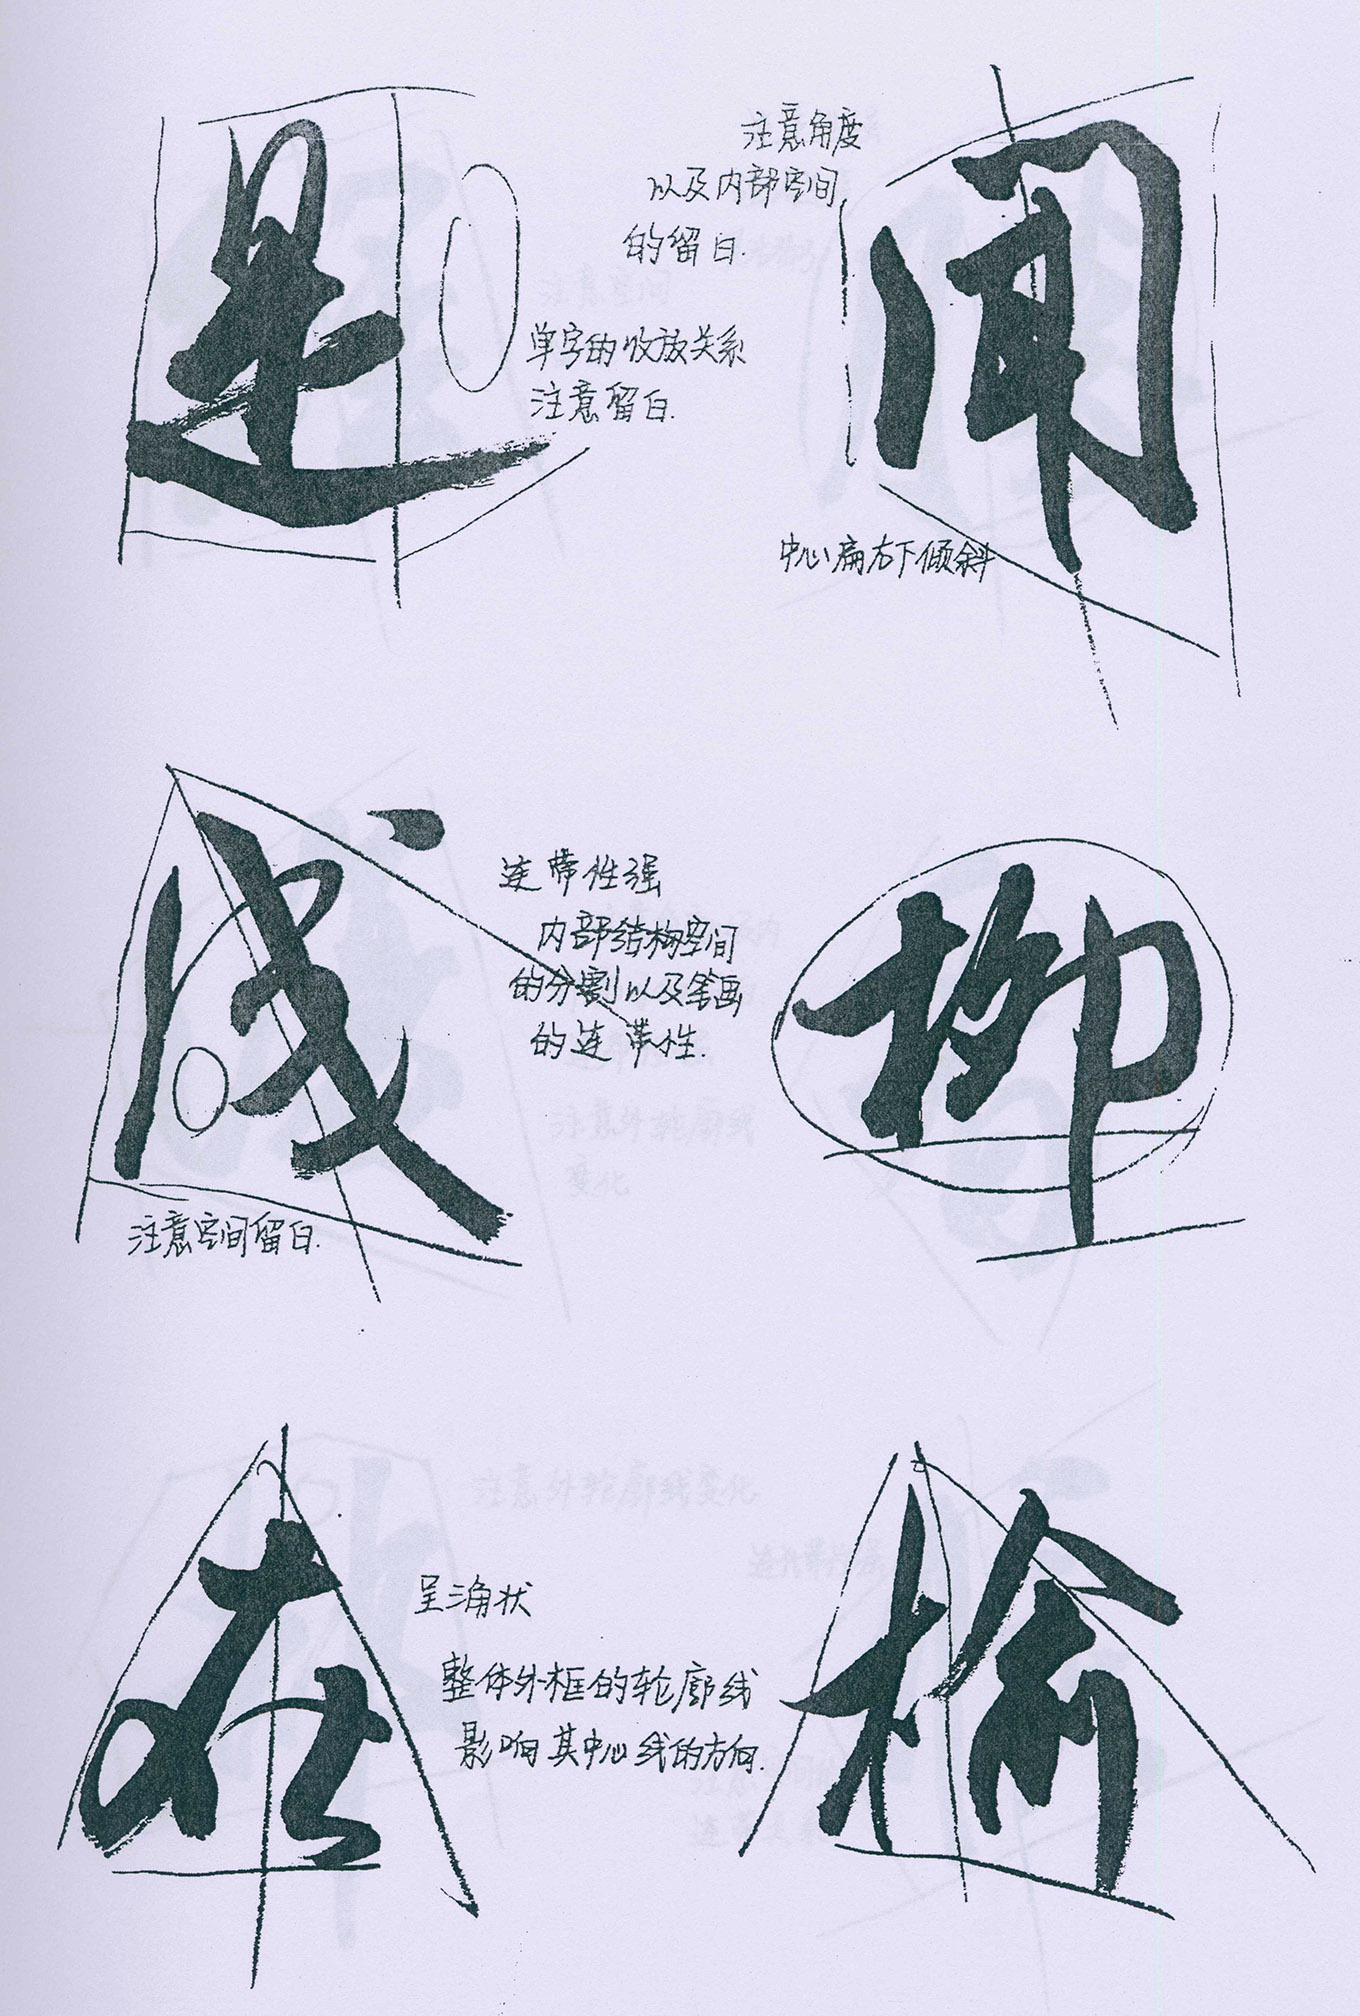 是
闻
注意角度
以及内部空间
的留白.
单字的收放关系
注意留白.
中心扁右下倾斜
成
柳
连带性强
内部结构空间
的分割以及笔画
的连带性.
注意空间留白.
在
榆
呈三角状
整体外框的轮廓线
影响其中心线的方向.